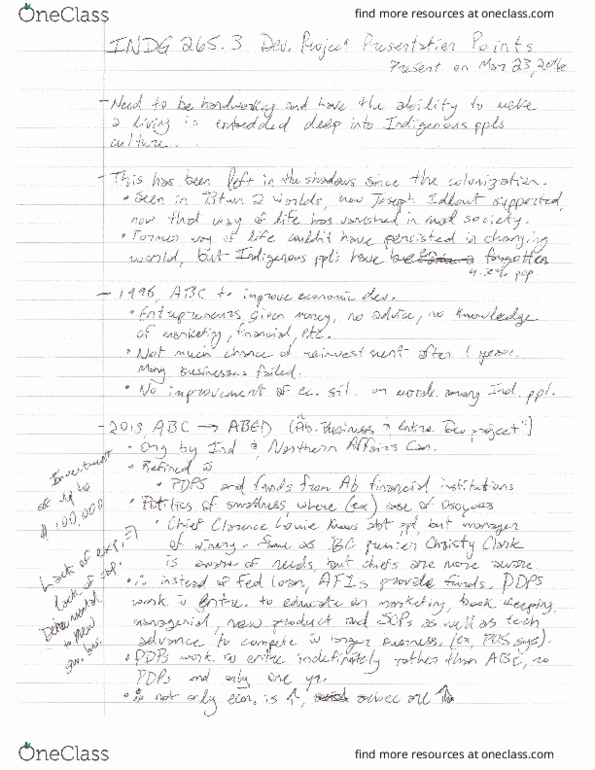 find more resources at oneclass.com
OneClass
INDG 265.3 Dev. Project Presentation Points
Present on Mar 23, 2016
- Need to be hardworking and have the ability to make
a living is embedded deep into Indigenous ppls
culture.
- This has been left in the shadows since the colonization.
• Seen in Btwn 2 Worlds, how Joseph Idlout supported,
now that way of life has vanished in mod society.
• Former way of life couldn't have persisted in changing
world, but Indigenous ppl's have forgotten
pop.
- 1996, ABC to improve economic dev.
• Entrepreneurs given money, no advice, no knowledge
of marketing, financial, etc.
• Not much chance of reinvestment after 1 year.
Many businesses failed.
• No improvement of ec. sit. or morale among Ind. ppl.
- 2013, ABC → ABED (Ab. Business & Entre. Dev project")
• Org by Ind & Northern Affairs Can.
• Refined
• PDPS and funds from Ab financial institutions
• Politics of smallness, where (ex) case of Osoyoos
• Chief Clarence Louie knows abt ppl, but manager
of winery. Same as BC premier Christy Clark
is aware of needs, but chiefs are more aware
• instead of Fed loan, AFIs provide funds. PDPS
work entre. to educate on marketing, book keeping,
managerial, new product and SOPs as well as tech
advance to compete larger business. (ex, POS sys).
• PDPs work entre indefinitely rather than ABC, no
PDPs and only one yr.
• not only econ. is ↑, are ↑
Investment
of up to
$100,000
Lack of exp. =
lack of
Detrimental
to new
OneClass
find more resources at oneclass.com